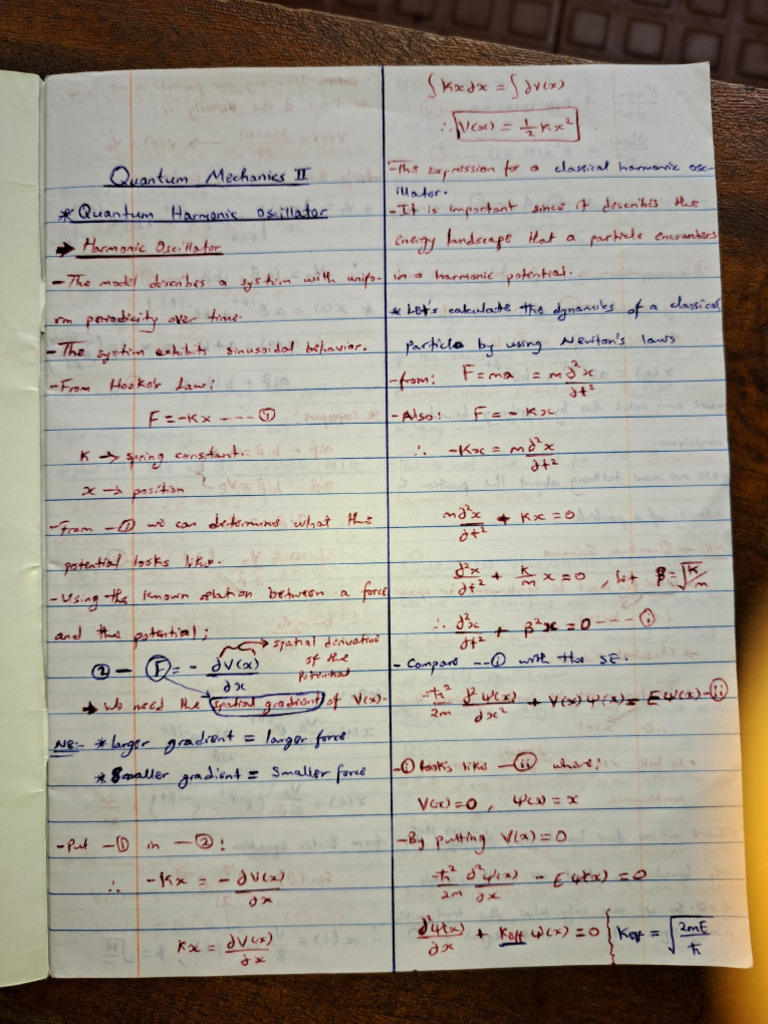 Quantum Mechanics II
* Quantum Harmonic Oscillator
→ Harmonic Oscillator
- The model describes a system with unifo-
rm periodicity over time.
- The system exhibits sinusoidal behavior.
- From Hooke's Law:
F = -Kx ---- ①
K → spring constant.
x → position
- From -① we can determine what the
potential looks like.
- Using the known relation between a force
and the potential;
② - F = - ∂V(x)/∂x → spatial derivative
of the
potential
→ We need the spatial gradient of V(x).
NB:- * larger gradient = larger force
* Smaller gradient = smaller force
- Put -① in -②:
∴ -Kx = - ∂V(x)/∂x
Kx = ∂V(x)/∂x
∫ Kx ∂x = ∫ ∂V(x)
∴ V(x) = 1/2 Kx²
- This expression for a classical harmonic osc-
illator.
- It is important since it describes the
energy landscape that a particle encounters
in a harmonic potential.
* Let's calculate the dynamics of a classical
particle by using Newton's laws
- from: F = ma = m ∂²x/∂t²
- Also: F = - Kx
∴ -Kx = m ∂²x/∂t²
m∂²x/∂t² + Kx = 0
∂²x/∂t² + K/m x = 0 , let β = √K/m
∴ ∂²x/∂t² + β²x = 0 ---- ⓘ
- Compare --ⓘ with the SE.
-ħ²/2m ∂²ψ(x)/∂x² + V(x)ψ(x) = Eψ(x) -ⓘⓘ
- ⓘ looks like -ⓘⓘ where;
V(x) = 0 , ψ(x) = x
- By putting V(x) = 0
-ħ²/2m ∂²ψ(x)/∂x - Eψ(x) = 0
∂²ψ(x)/∂x + Keff ψ(x) = 0 { Keff = √2mE/ħ